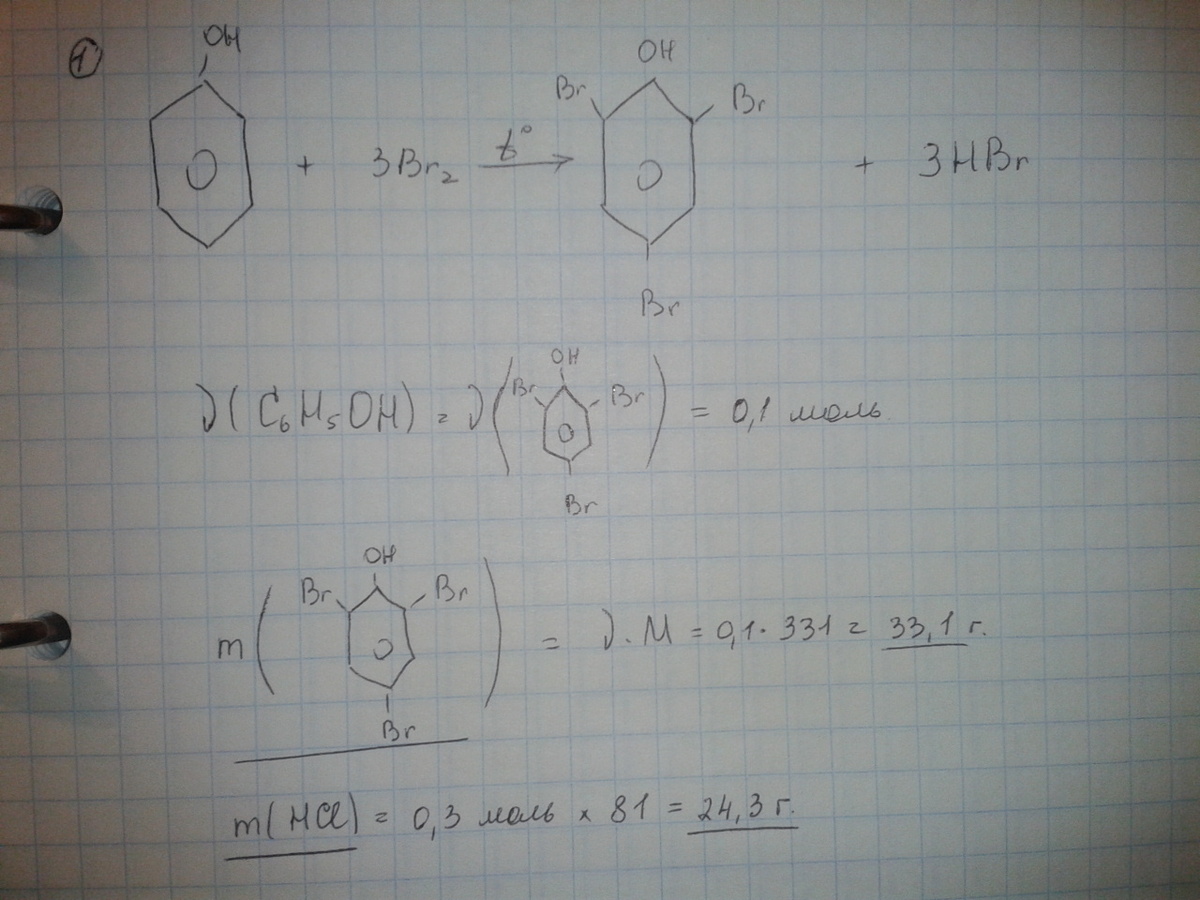 1
OH
+ 3Br₂ t° → Br OH Br Br + 3HBr
ν(C₆H₅OH) = ν( OH Br Br Br ) = 0,1 моль
m( OH Br Br Br ) = ν·M = 0,1·331 = 33,1 г.
m(HCl) = 0,3 моль × 81 = 24,3 г.